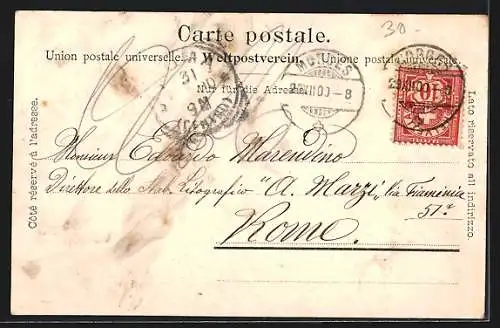 30-
Carte postale.
Union postale universelle. Weltpostverein. Unione postale universale.
Nur für die Adresse.
Côté réservé à l'adresse.
Lato riservato all'indirizzo
31
9M
(CENTRO)
MORGES
XII 00 - 8
MORGES
10
Monsieur Edoardo Marendino
Direttore dello Stab. Litografico "A. Marzi" Via Flaminia
57ª
Rome.